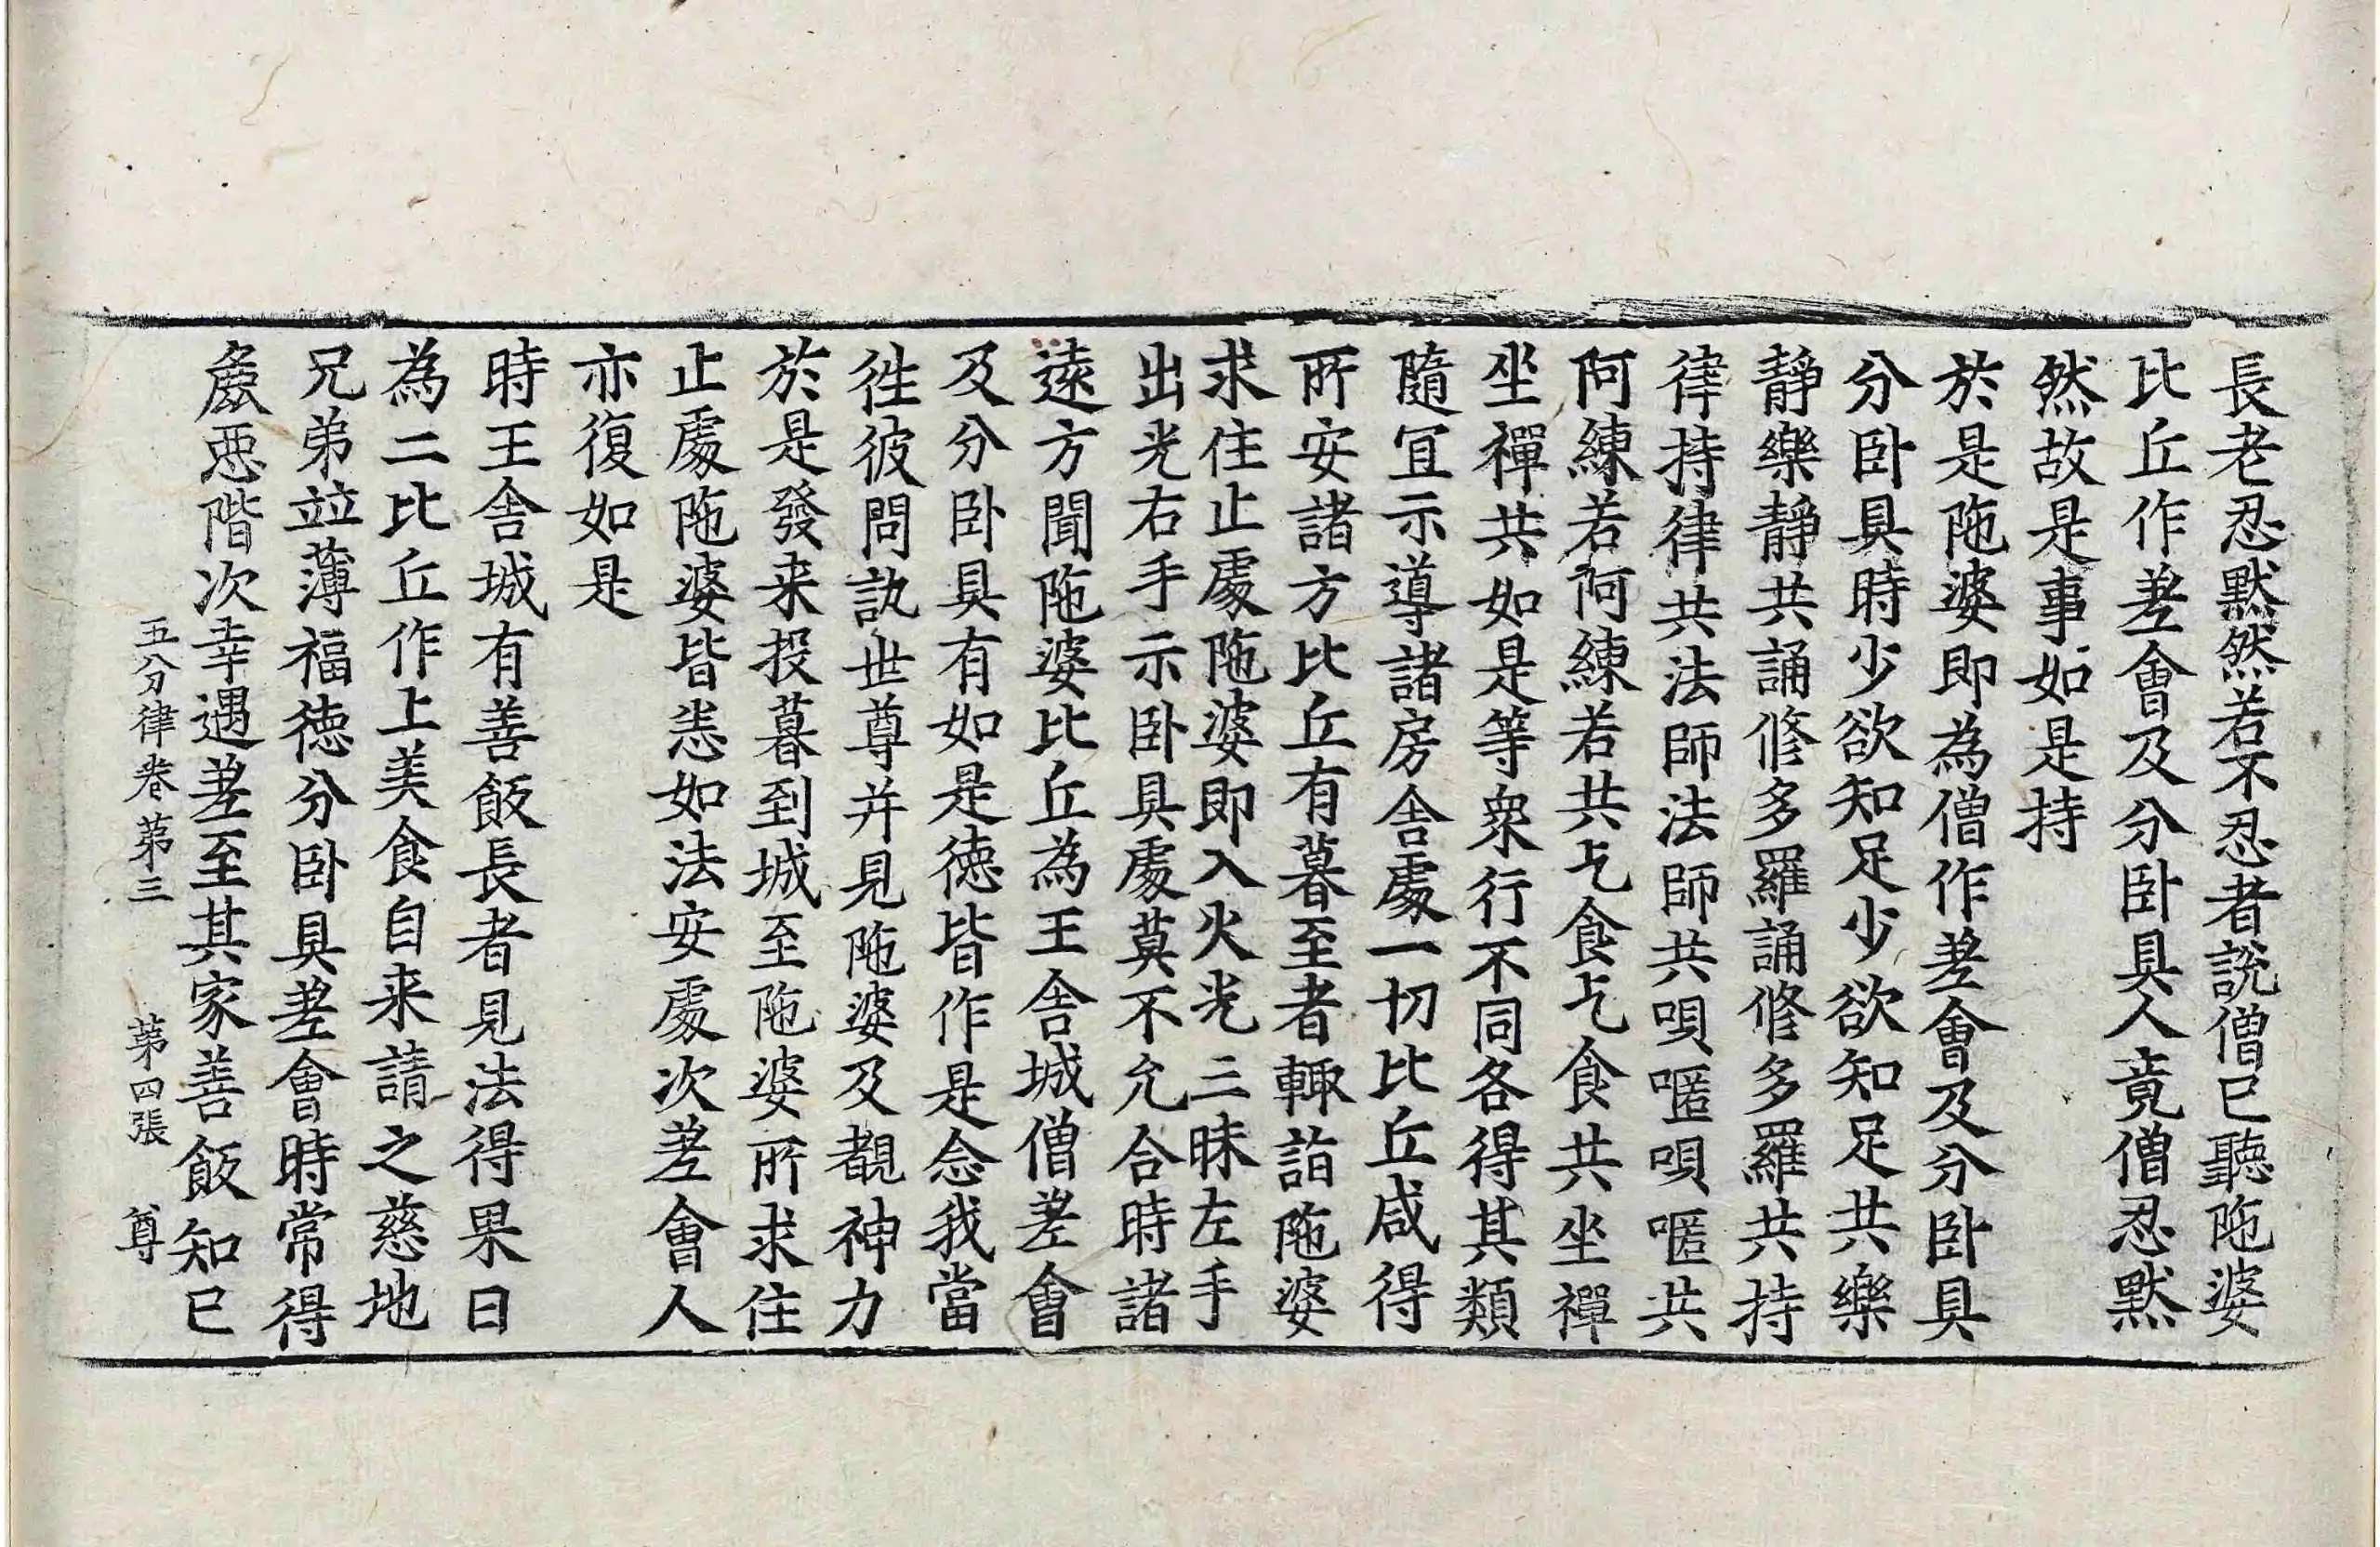 長老忍默然若不忍者說僧已聽陁婆
比丘作差會及分卧具人竟僧忍默
然故是事如是持
於是陁婆即為僧作差會及分卧具
分卧具時少欲知足少欲知足共樂
靜樂靜共誦修多羅誦修多羅共持
律持律共法師法師共唄匿唄匿共
阿練若阿練若共乞食乞食共坐禪
坐禪共如是等衆行不同各得其類
隨冝示導諸房舍處一切比丘咸得
所安諸方比丘有暮至者輙詣陁婆
求住止處陁婆即入火光三昧左手
出光右手示卧具處莫不允合時諸
遠方聞陁婆比丘為王舍城僧差會
及分卧具有如是德皆作是念我當
徃彼問訊世尊并見陁婆及覩神力
於是發来投暮到城至陁婆所求住
止處陁婆皆悉如法安處次差會人
亦復如是
時王舍城有善飯長者見法得果日
為二比丘作上美食自来請之慈地
兄弟竝薄福德分卧具差會時常得
麁惡階次幸遇差至其家善飯知已
五分律卷第三 第四張 尊